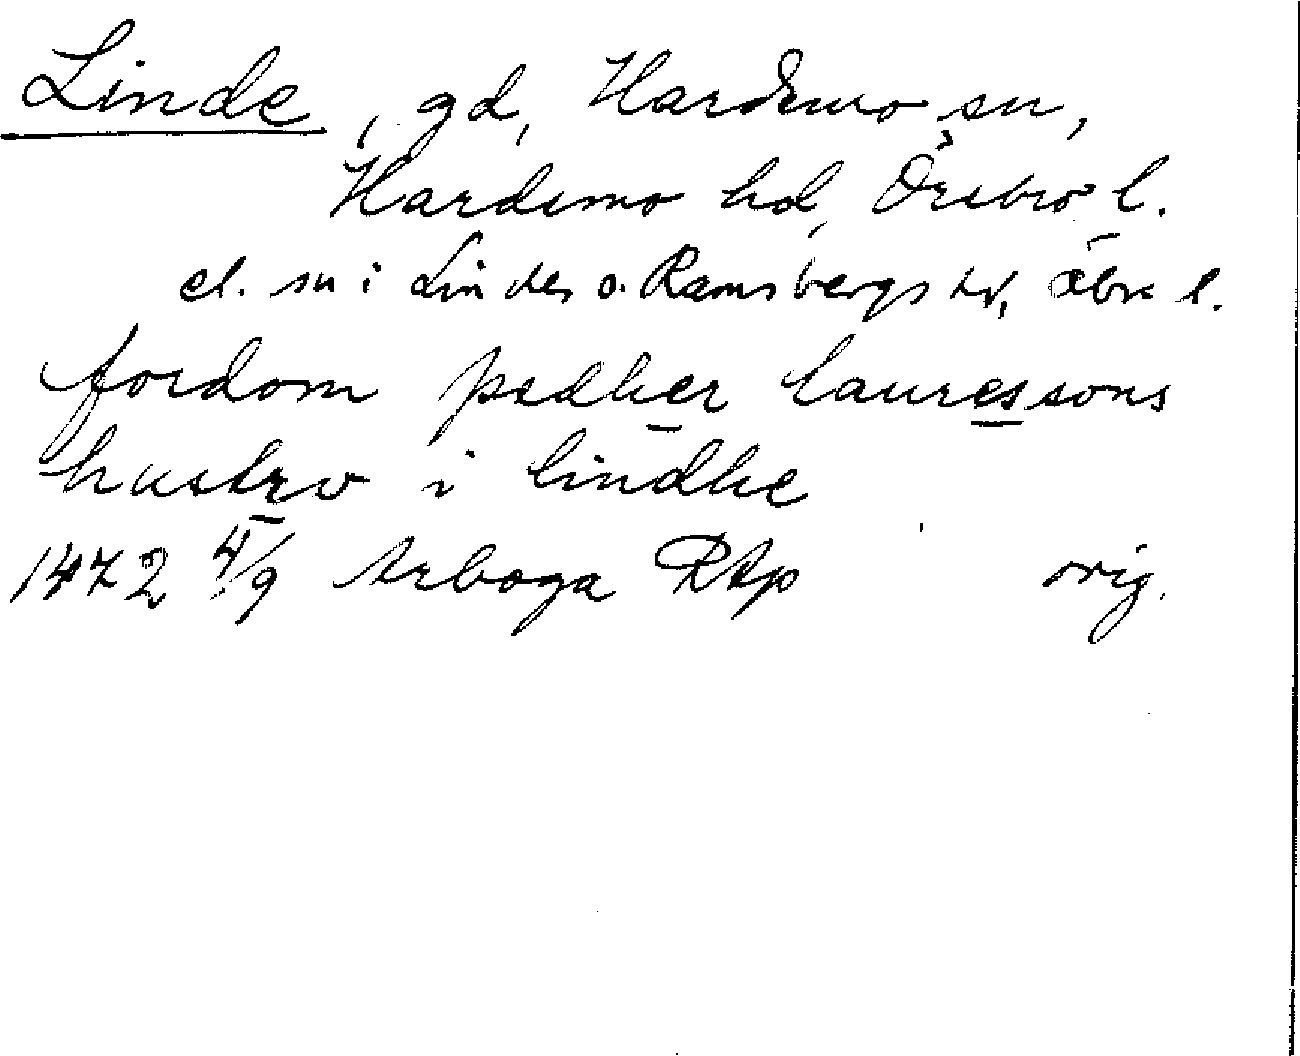 Linde, gd, Hardemo sn,
Hardemo hd, Örebro l.
el. sn i Lindes o. Ramsbergs hd, Öbro l.
fordom pedher lauressons
hustrv i lindhe
1472 4/9 Arboga RAp orig.